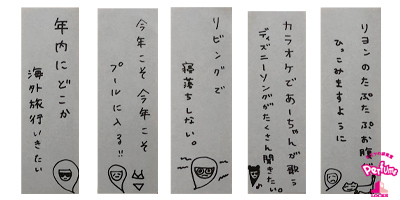 リヨンのたぷたぷお腹が
ひっこみますように
カラオケであ〜ちゃんが歌う
ディズニーソングがたくさん聞きたい。
リビングで
寝落ちしない。
今年こそ 今年こそ
プールに入る!!
年内にどこか
海外旅行いきたい
Perfume